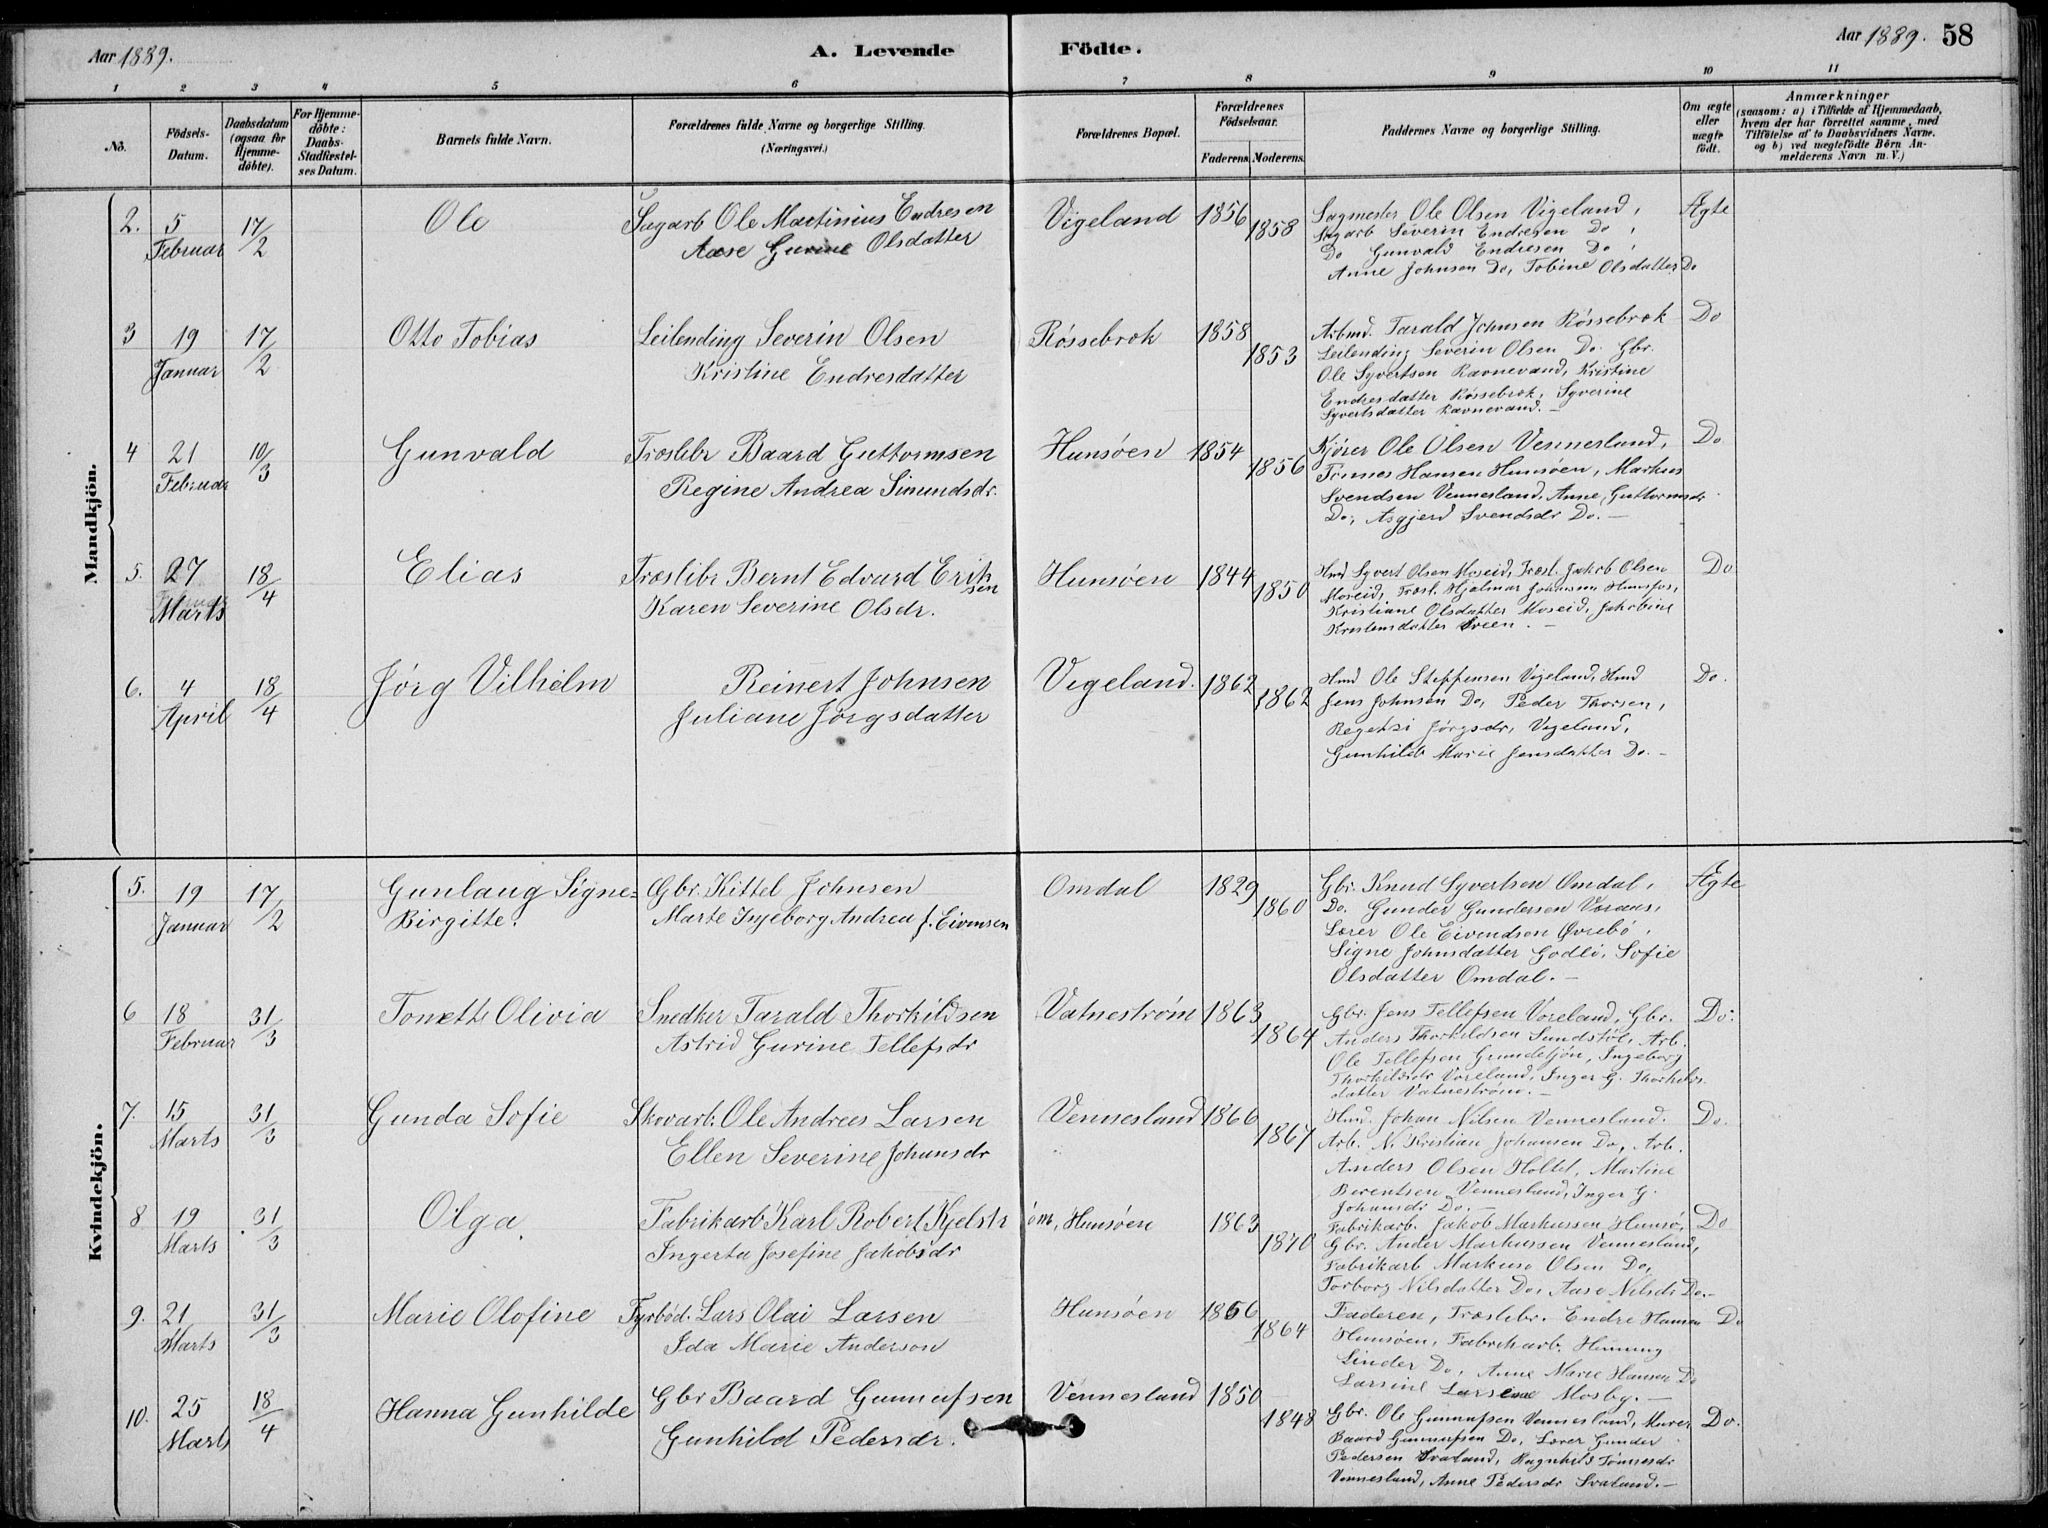 Aar 1889.
A. Levende Födte.
Aar 1889. 58
1 2 3 4 5 6 7 8 9 10 11
No.
Födsels-Datum.
Daabsdatum (ogsaa for Hjemme-döbte).
For Hjemme-döbte: Daabs-Stadfæstel-ses Datum.
Barnets fulde Navn.
Forældrenes fulde Navne og borgerlige Stilling.
(Næringsvei.)
Forældrenes Bopæl.
Forældrenes Födselsaar.
Faderens. Moderens.
Faddernes Navne og borgerlige Stilling.
Om ægte eller uægte födt.
Anmærkninger
(saasom: a) i Tilfælde af Hjemmedaab,
hvem der har forrettet samme, med
Tilföielse af to Daabsvidners Navne.
og b) ved uægtefödte Börn An-
melderens Navn m. V.)
Mandkjön.
2. 5 Februar 17/2 Ole
Sagarb Ole Martinius Endresen
Aase Gurine Olsdatter
Vigeland 1856 1858
Sagmester Ole Olsen Vigeland,
Sagarb Severin Endresen Do,
Do Gunvald Endresen Do,
Anne Johnsen Do, Tobine Olsdatter Do
Ægte
3 19 Januar 17/2 Otto Tobias
Leilending Severin Olsen
Kristine Endresdatter
Røssebrok 1858 1853
Arbmd. Tarald Johnsen Røssebrok
Leilending Severin Olsen Do. Gbr.
Ole Syvertsen Ravnevand, Kristine
Endresdatter Røssebrok, Syverine
Syvertsdatter Ravnevand.-
Do
4 21 Februar 10/3 Gunvald
Træslibr Baard Guttormsen
Regine Andrea Simundsdr.
Hunsøen 1854 1856
Kjører Ole Olsen Vennesland,
Tønnes Hansen Hunsøen, Markus
Svendsen Vennesland, Anne Guttormsdr
Do, Asgjerd Svendsdr Do.-
Do
5. 27 Marts 18/4 Elias
Træslibr Bernt Edvard Eriksen
Karen Severine Olsdr.
Hunsøen 1844 1850
Hmd Syvert Olsen Moseid, Træsl. Jakob Olsen
Moseid, Træsl. Hjalmar Johansen Hunsfos,
Kristiane Olsdatter Moseid, Jakobine
Kristensdatter Sveen.-
Do
6. 4 April 18/4 Jørg Vilhelm
Reinert Johnsen
Juliane Jørgsdatter
Vigeland. 1862 1862
Hmd Ole Steffensen Vigeland, Hmd
Jens Johnsen Do, Peder Thorsen,
Jørgsdr, Vigeland,
Gunhild Marie Jensdatter Do.-
Do.
Kvindekjön.
5. 19 Januar 17/2 Gunlaug Signe-
Birgitte.
Gbr. Kittel Johnsen
Marte Ingeborg Andrea f. Eivensen
Omdal 1829 1860
Gbr. Knud Syvertsen Omdal,
Do. Gunder Gundersen Voraas,
Lærer Ole Eivendsen Øvrebø,
Signe Johnsdatter Godli, Sofie
Olsdatter Omdal.-
Ægte
6 18 Februar 31/3 Tonette Olivia
Snedker Tarald Thorkildsen
Astrid Gurine Tellefsdr
Vatnestrøm 1863 1864
Gbr. Jens Tellefsen Voreland, Gbr.
Anders Thorkildsen Sundstøl, Arb.
Ole Tellefsen Grundetjøn, Ingeborg
Thorkildsdr Voreland, Inger G. Thorkilds
datter Vatnestrøm.-
Do.
7. 15 Marts 31/3 Gunda Sofie
Skovarb. Ole Andreas Larsen
Ellen Severine Johansdr
Vennesland 1866 1867
Hmd. Johan Nilsen Vennesland.
Arb. N. Kristian Johansen Do, Arb.
Anders Olsen Holtet, Martine
Berentsen Vennesland, Inger G.
Johansdr Do.-
Do.
8 19 Marts 31/3 Olga.
Fabrikarb Karl Robert Kjelstrøm,
Ingerta Josefine Jakobsdr
Hunsøen 1863 1870
Fabrikarb. Jakob Markussen Hunsø,
Gbr. Ander Markussen Vennesland,
Fabrikarb Markus Olsen Do,
Torborg Nilsdatter Do, Aase Nilsdr Do.-
Do
9. 21 Marts 31/3 Marie Olofine
Fyrbød. Lars Olai Larsen
Ida Marie Anderson
Hunsøen 1866 1864
Faderen, Træslibr. Endre Hansen
Hunsøen, Fabrikarb. Henning
Linder Do, Anne Marie Hansen Do
Larsine Larsen Mosby.-
Do
10. 25 Marts 18/4 Hanna Gunhilde
Gbr Baard Gunnufsen
Gunhild Pedersdr.
Vennesland 1850 1848
Gbr. Ole Gunnufsen Vennesland, Murer
Baard Gunnufsen Do, Lærer Gunder
Pedersen Svaland, Ragnhild Tønnesdr
Vennesland, Anne Pedersdr Svaland.-
Do.